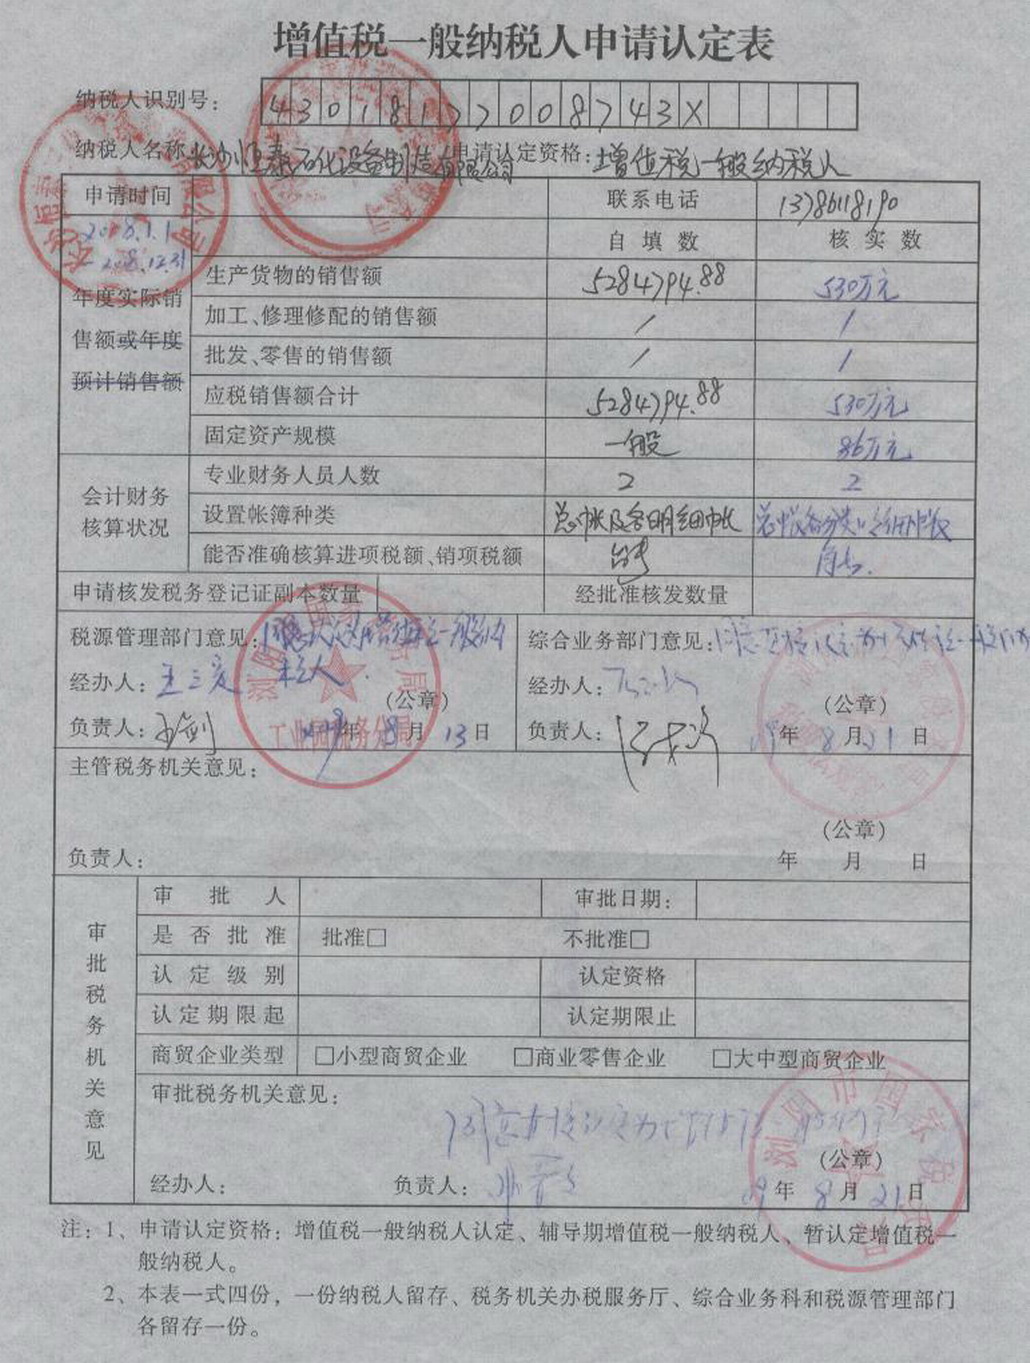 增值税一般纳税人申请认定表
纳税人识别号： 43018177008743X
纳税人名称 长沙恒泰石化设备制造有限公司 申请认定资格：增值税一般纳税人
申请时间 联系电话 13786118190
2008.1.1 自填数 核实数
-2008.12.31
年度实际销售额或年度预计销售额
生产货物的销售额 5284794.88 530万元
加工、修理修配的销售额 / /
批发、零售的销售额 / /
应税销售额合计 5284794.88 530万元
固定资产规模 一般 86万元
会计财务核算状况
专业财务人员人数 2 2
设置帐簿种类 总帐及各明细帐
能否准确核算进项税额、销项税额 能
申请核发税务登记证副本数量 经批准核发数量
税源管理部门意见： 综合业务部门意见：
经办人： 经办人：
(公章) (公章)
负责人： 09年8月13日 负责人： 09年8月21日
工业园税务分局
主管税务机关意见：
(公章)
负责人： 年 月 日
审批税务机关意见
审批人 审批日期：
是否批准 批准□ 不批准□
认定级别 认定资格
认定期限起 认定期限止
商贸企业类型 □小型商贸企业 □商业零售企业 □大中型商贸企业
审批税务机关意见：
(公章)
经办人： 负责人： 09年8月21日
注：1、申请认定资格：增值税一般纳税人认定、辅导期增值税一般纳税人、暂认定增值税一
般纳税人。
2、本表一式四份，一份纳税人留存、税务机关办税服务厅、综合业务科和税源管理部门
各留存一份。